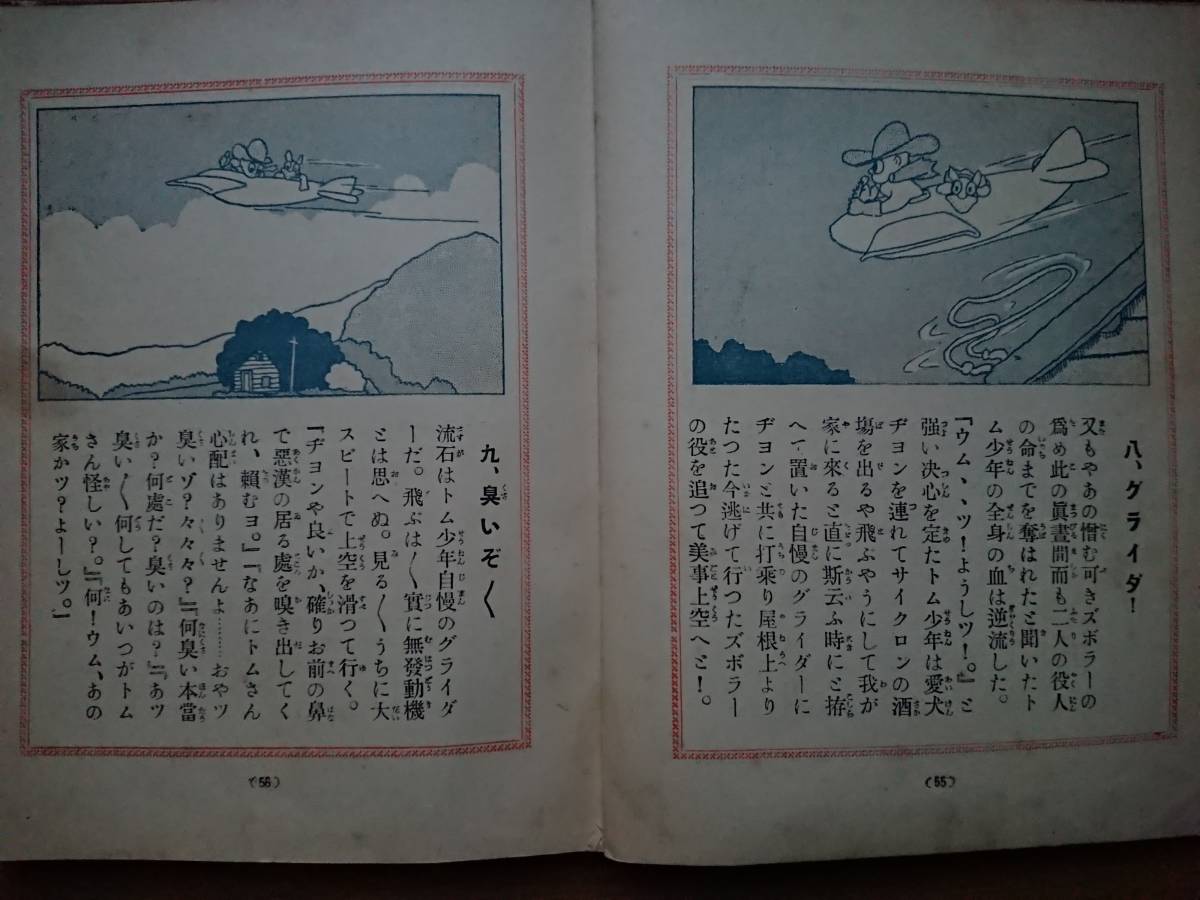 八、グライダ!
又もやあの憎む可きズボラーの
爲め此の眞晝間而も二人の役人
の命までを奪はれたと聞いたト
ム少年の全身の血は逆流した。
『ウム、、ツ!ようしツ!。』と
強い決心を定たトム少年は愛犬
ヂヨンを連れてサイクロンの酒
塲を出るや飛ぶやうにして我が
家に來ると直に斯云ふ時にと拵
へて置いた自慢のグライダーに
ヂヨンと共に打乘り屋根上より
たつた今逃げて行つたズボラー
の役を追つて美事上空へと!。
(55)
九、臭いぞ〱
流石はトム少年自慢のグライダ
ーだ。飛ぶは〱實に無發動機
とは思へぬ。見る〱うちに大
スピートで上空を滑つて行く。
『ヂヨンや良いか、確りお前の鼻
で惡漢の居る處を嗅き出してく
れ、賴むヨ。』『なあにトムさん
心配はありませんよ……おやツ
臭いゾ?々々々?』『何臭い本當
か?何處だ?臭いのは?』『あツ
臭い〱何してもあいつがトム
さん怪しい?。』『何!ウム、あの
家かツ?よーしツ。』
(56)